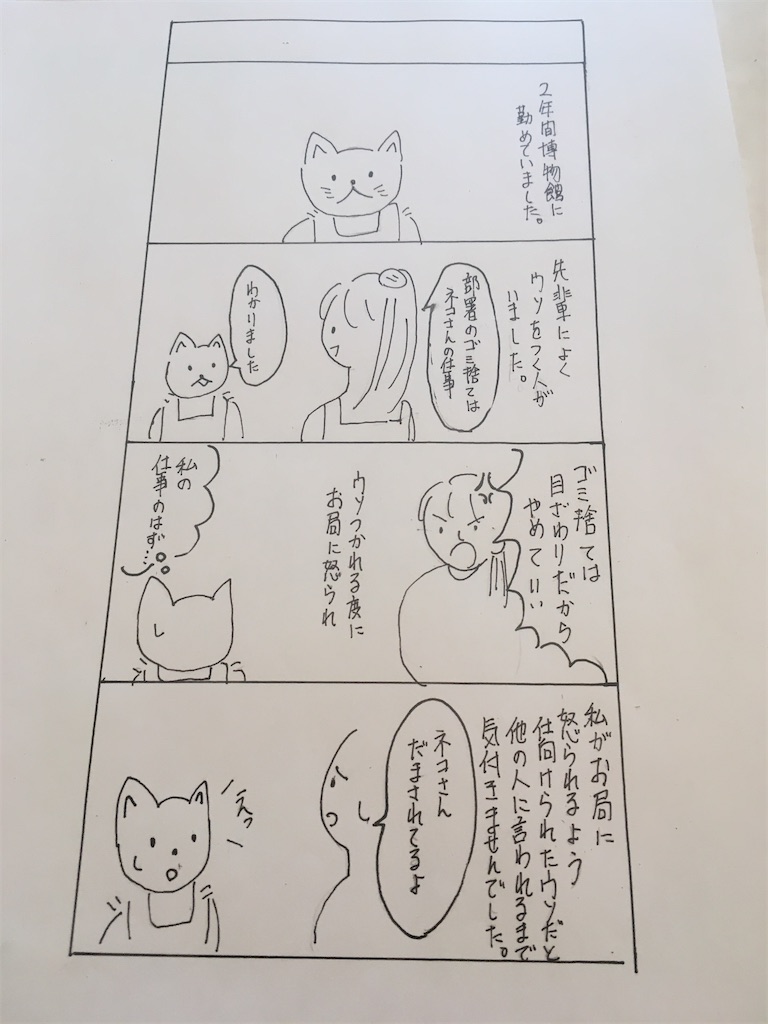 2年間博物館に
勤めていました。
先輩によく
ウソをつく人が
いました。
部署のゴミ捨ては
ネコさんの仕事
わかりました
ゴミ捨ては
目ざわりだから
やめて!!
ウソつかれる度に
お局に怒られ
私の
仕事のはず…
私がお局に
怒られるよう
仕向けられたウソだと
他の人に言われるまで
気付きませんでした。
ネコさん
だまされてるよ
えっ